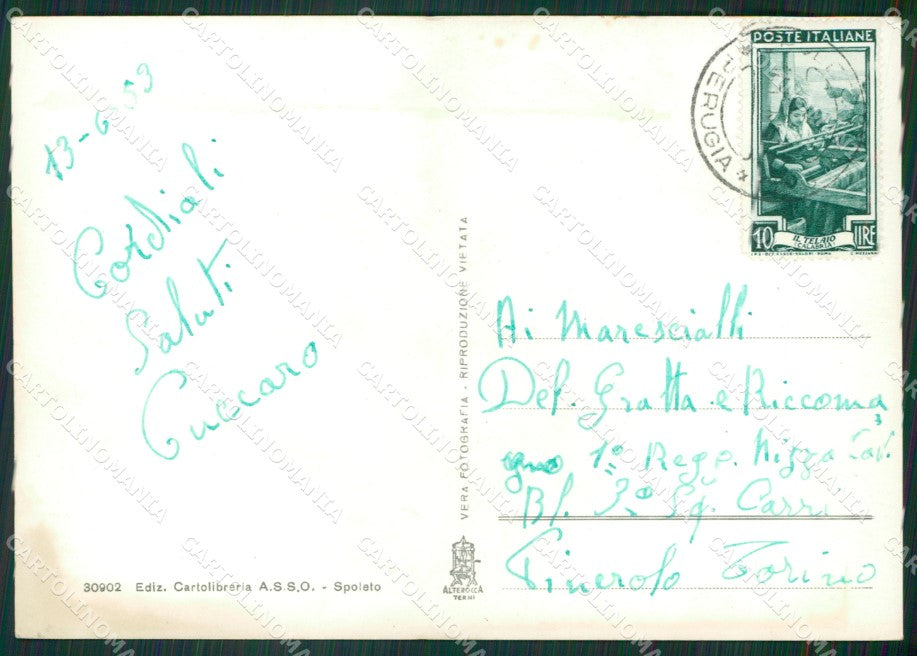 13-6-53
Cordiali
Saluti
Cuccaro
30902 Ediz. Cartolibreria A.S.S.O. - Spoleto
VERA FOTOGRAFIA - RIPRODUZIONE VIETATA
ALTEROCCA
TERNI
PERUGIA
POSTE ITALIANE
10 LIRE
IL TELAIO
CALABRIA
Ai Marescialli
Del. Gratta e Riccoma
gno 1° Regg. Nizza Cav.
Bl. 3° Sq. Carri
Pinerolo Torino
CARTOLINOMANIA